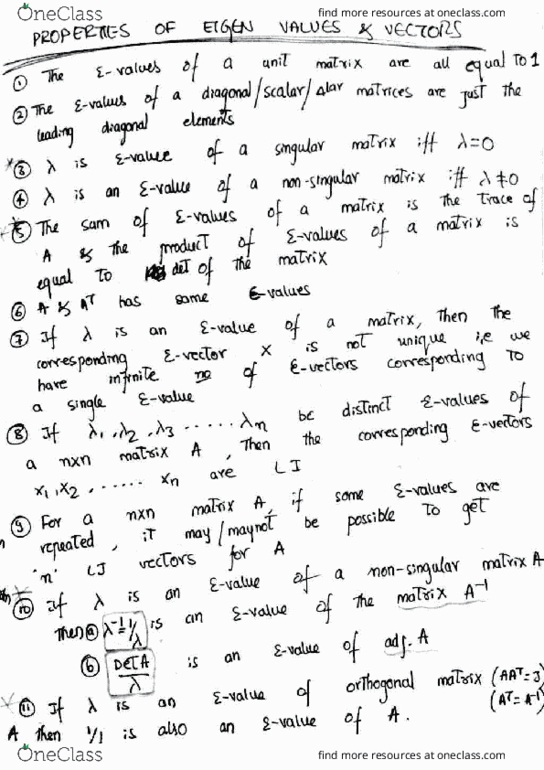 OneClass
find more resources at oneclass.com
find more resources at oneclass.com
PROPERTIES OF EIGEN VALUES & VECTORS
① The Ɛ-values of a unit matrix are all equal to 1
② The Ɛ-values of a diagonal/scalar/Δlar matrices are just the
leading diagonal elements
③ λ is Ɛ-value of a singular matrix iff λ=0
④ λ is an Ɛ-value of a non-singular matrix iff λ≠0
⑤ The sam of Ɛ-values of a matrix is the trace of
A & the product of Ɛ-values of a matrix is
equal to det of the matrix
⑥ A & Aᵀ has same Ɛ-values
⑦ If λ is an Ɛ-value of a matrix, then the
corresponding Ɛ-vector X is not unique i.e we
have infinite no of Ɛ-vectors corresponding to
a single Ɛ-value
⑧ If λ₁,λ₂,λ₃.......λn be distinct Ɛ-values of
a nxn matrix A, Then the corresponding Ɛ-vectors
x₁,x₂,...... xn are LI
⑨ For a nxn matrix A, if some Ɛ-values are
repeated, it may/maynot be possible to get
'n' LI vectors for A
⑩ If λ is an Ɛ-value of a non-singular matrix A
Then ⓐ λ⁻¹=1/λ is an Ɛ-value of the matrix A⁻¹
ⓑ Det A/λ is an Ɛ-value of adj. A
⑪ If λ is an Ɛ-value of orthogonal matrix (AAᵀ=I)
(Aᵀ=A⁻¹)
A then 1/λ is also an Ɛ-value of A.
OneClass
find more resources at oneclass.com
find more resources at oneclass.com